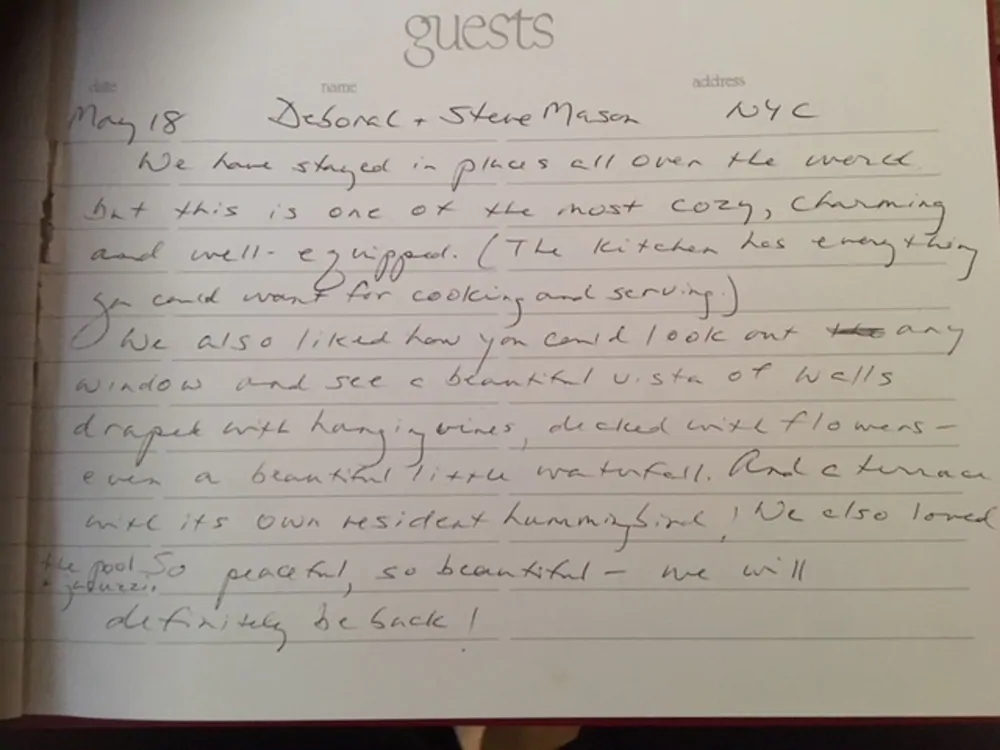 guests
date name address
May 18 Deborah + Steve Mason NYC
We have stayed in places all over the world
but this is one of the most cozy, charming
and well-equipped. (The kitchen has everything
you could want for cooking and serving.)
We also liked how you could look out any
window and see a beautiful vista of walls
draped with hanging vines, decked with flowers –
even a beautiful little waterfall. And a terrace
with its own resident hummingbird! We also loved
the pool So peaceful, so beautiful – we will
+ jacuzzi.
definitely be back!